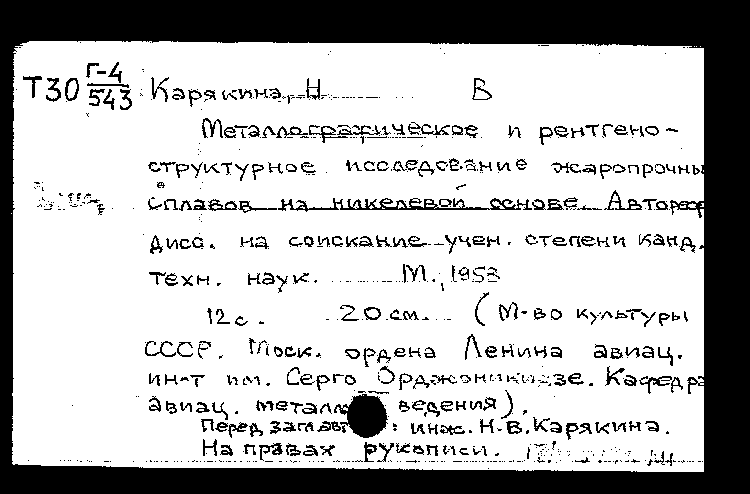 Т30 Г-4/543 Карякина, Н В
Металлографическое и рентгено-
структурное исследование жаропрочны
сплавов на никелевой основе. Автореф
дисс. на соискание учен. степени канд.
техн. наук. М., 1953
12с. 20 см. (М-во культуры
СССР. Моск. ордена Ленина авиац.
ин-т им. Серго Орджоникидзе. Кафедра
авиац. металловедения).
Перед загл. авт: инж. Н.В. Карякина.
На правах рукописи.